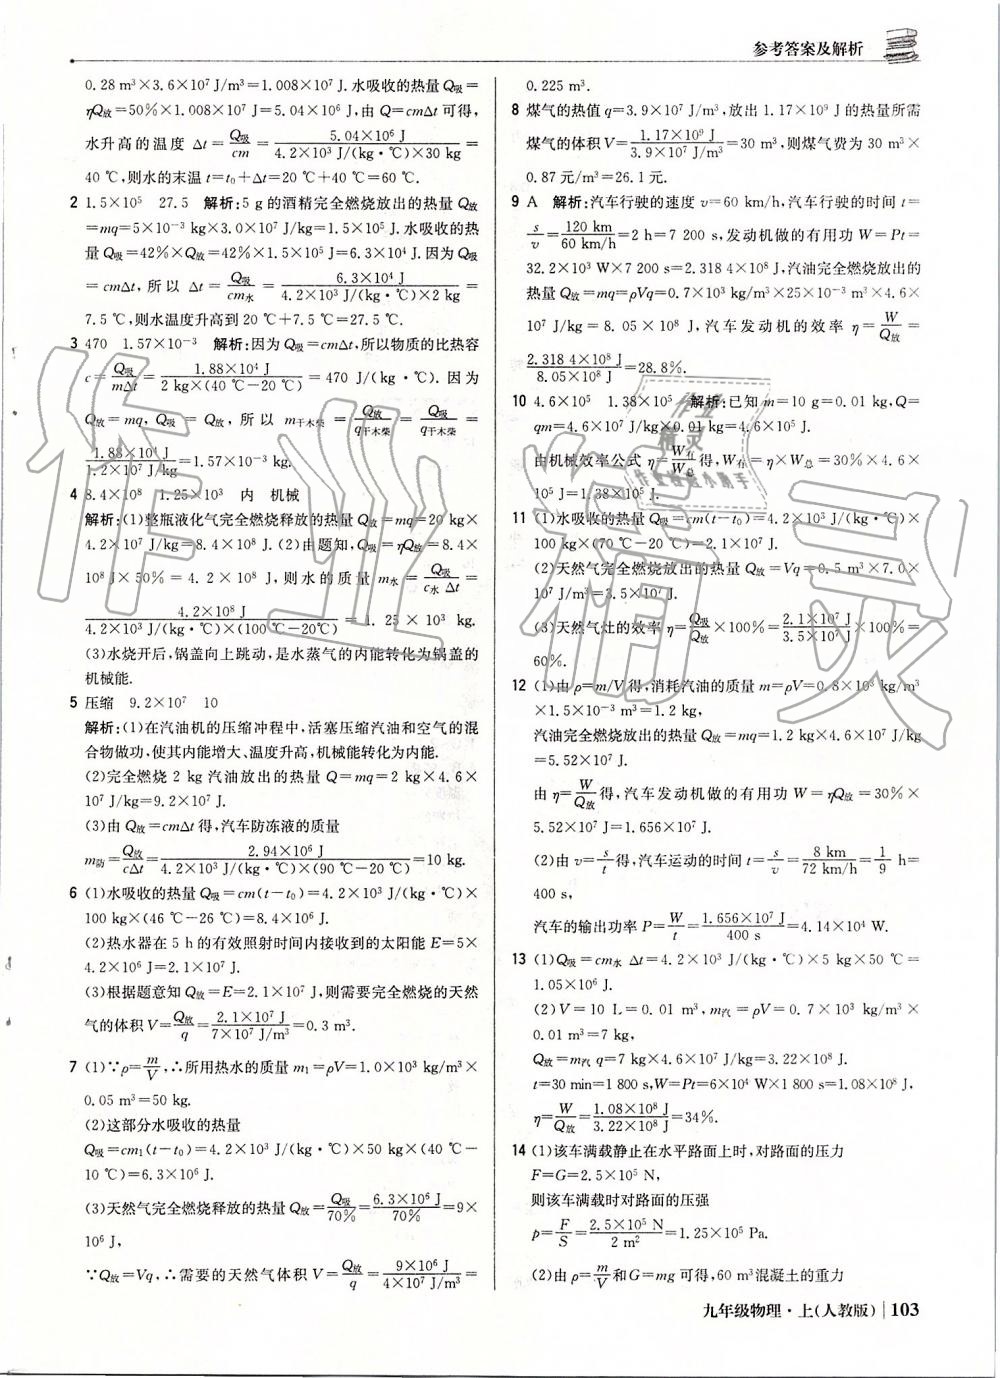 参考答案及解析
0.28 m³×3.6×10⁷ J/m³=1.008×10⁷ J.水吸收的热量 Q吸=
ηQ放=50%×1.008×10⁷ J=5.04×10⁶ J,由 Q=cmΔt 可得,
水升高的温度 Δt=Q吸/cm=5.04×10⁶ J/4.2×10³ J/(kg·℃)×30 kg=
40 ℃,则水的末温 t=t₀+Δt=20 ℃+40 ℃=60 ℃.
2 1.5×10⁵ 27.5 解析:5 g的酒精完全燃烧放出的热量 Q放
=mq=5×10⁻³ kg×3.0×10⁷ J/kg=1.5×10⁵ J.水吸收的热
量 Q吸=42%×Q放=42%×1.5×10⁵ J=6.3×10⁴ J.因为 Q吸
=cmΔt,所以 Δt=Q吸/cm水=6.3×10⁴ J/4.2×10³ J/(kg·℃)×2 kg=
7.5 ℃,则水温度升高到 20 ℃+7.5 ℃=27.5 ℃.
3 470 1.57×10⁻³ 解析:因为 Q吸=cmΔt,所以物质的比热容
c=Q吸/mΔt=1.88×10⁴ J/2 kg×(40 ℃-20 ℃)=470 J/(kg·℃).因为
Q放=mq, Q吸=Q放,所以 m干木柴=Q放/q干木柴=Q吸/q干木柴=
1.88×10⁴ J/1.2×10⁷ J/kg=1.57×10⁻³ kg.
4 8.4×10⁸ 1.25×10³ 内 机械
解析:(1)整瓶液化气完全燃烧释放的热量 Q放=mq=20 kg×
4.2×10⁷ J/kg=8.4×10⁸ J.(2)由题知,Q吸=ηQ放=8.4×
10⁸ J×50%=4.2×10⁸ J,则水的质量 m水=Q吸/c水 Δt=
4.2×10⁸ J/4.2×10³ J/(kg·℃)×(100 ℃-20℃)=1.25×10³ kg.
(3)水烧开后,锅盖向上跳动,是水蒸气的内能转化为锅盖的
机械能.
5 压缩 9.2×10⁷ 10
解析:(1)在汽油机的压缩冲程中,活塞压缩汽油和空气的混
合物做功,使其内能增大、温度升高,机械能转化为内能.
(2)完全燃烧 2 kg 汽油放出的热量 Q=mq=2 kg×4.6×
10⁷ J/kg=9.2×10⁷ J.
(3)由 Q放=cmΔt 得,汽车防冻液的质量
m防=Q放/cΔt=2.94×10⁶ J/4.2×10³ J/(kg·℃)×(90 ℃-20 ℃)=10 kg.
6 (1)水吸收的热量 Q吸=cm(t-t₀)=4.2×10³ J/(kg·℃)×
100 kg×(46 ℃-26 ℃)=8.4×10⁶ J.
(2)热水器在 5 h 的有效照射时间内接收到的太阳能 E=5×
4.2×10⁶ J=2.1×10⁷ J.
(3)根据题意知 Q放=E=2.1×10⁷ J,则需要完全燃烧的天然
气的体积 V=Q放/q=2.1×10⁷ J/7×10⁷ J/m³=0.3 m³.
7 (1)∵ρ=m/V,∴所用热水的质量 m₁=ρV=1.0×10³ kg/m³×
0.05 m³=50 kg.
(2)这部分水吸收的热量
Q吸=cm₁(t-t₀)=4.2×10³ J/(kg·℃)×50 kg×(40 ℃-
10 ℃)=6.3×10⁶ J.
(3)天然气完全燃烧释放的热量 Q放=Q吸/70%=6.3×10⁶ J/70%=9×
10⁶ J,
∵Q放=Vq,∴需要的天然气体积 V=Q放/q=9×10⁶ J/4×10⁷ J/m³=
0.225 m³.
8 煤气的热值 q=3.9×10⁷ J/m³,放出 1.17×10⁹ J 的热量所需
煤气的体积 V=1.17×10⁹ J/3.9×10⁷ J/m³=30 m³,则煤气费为 30 m³×
0.87 元/m³=26.1 元.
9 A 解析:汽车行驶的速度 v=60 km/h,汽车行驶的时间 t=
s/v=120 km/60 km/h=2 h=7 200 s,发动机做的有用功 W=Pt=
32.2×10³ W×7 200 s=2.318 4×10⁸ J,汽油完全燃烧放出的
热量 Q放=mq=ρVq=0.7×10³ kg/m³×25×10⁻³ m³×4.6×
10⁷ J/kg=8.05×10⁸ J,汽车发动机的效率 η=W/Q放=
2.318 4×10⁸ J/8.05×10⁸ J=28.8%.
10 4.6×10⁵ 1.38×10⁵ 解析:已知 m=10 g=0.01 kg,Q=
qm=4.6×10⁷ J/kg×0.01 kg=4.6×10⁵ J.
由机械效率公式 η=W有/W总得,W有=η×W总=30%×4.6×
10⁵ J=1.38×10⁵ J.
11 (1)水吸收的热量 Q吸=cm(t-t₀)=4.2×10³ J/(kg·℃)×
100 kg×(70 ℃-20 ℃)=2.1×10⁷ J.
(2)天然气完全燃烧放出的热量 Q放=Vq=0.5 m³×7.0×
10⁷ J/m³=3.5×10⁷ J.
(3)天然气灶的效率 η=Q吸/Q放×100%=2.1×10⁷ J/3.5×10⁷ J×100%=
60%.
12 (1)由 ρ=m/V 得,消耗汽油的质量 m=ρV=0.8×10³ kg/m³
×1.5×10⁻³ m³=1.2 kg,
汽油完全燃烧放出的热量 Q放=mq=1.2 kg×4.6×10⁷ J/kg
=5.52×10⁷ J.
由 η=W/Q放得,汽车发动机做的有用功 W=ηQ放=30%×
5.52×10⁷ J=1.656×10⁷ J.
(2)由 v=s/t得,汽车运动的时间 t=s/v=8 km/72 km/h=1/9 h=
400 s,
汽车的输出功率 P=W/t=1.656×10⁷ J/400 s=4.14×10⁴ W.
13 (1)Q吸=cm水 Δt=4.2×10³ J/(kg·℃)×5 kg×50 ℃=
1.05×10⁶ J.
(2)V=10 L=0.01 m³,m汽=ρV=0.7×10³ kg/m³×
0.01 m³=7 kg,
Q放=m汽 q=7 kg×4.6×10⁷ J/kg=3.22×10⁸ J.
t=30 min=1 800 s,W=Pt=6×10⁴ W×1 800 s=1.08×10⁸ J,
η=W/Q放=1.08×10⁸ J/3.22×10⁸ J=34%.
14 (1)该车满载静止在水平路面上时,对路面的压力
F=G=2.5×10⁵ N,
则该车满载时对路面的压强
p=F/S=2.5×10⁵ N/2 m²=1.25×10⁵ Pa.
(2)由 ρ=m/V和 G=mg 可得,60 m³ 混凝土的重力
九年级物理·上(人教版) 103
作业精灵